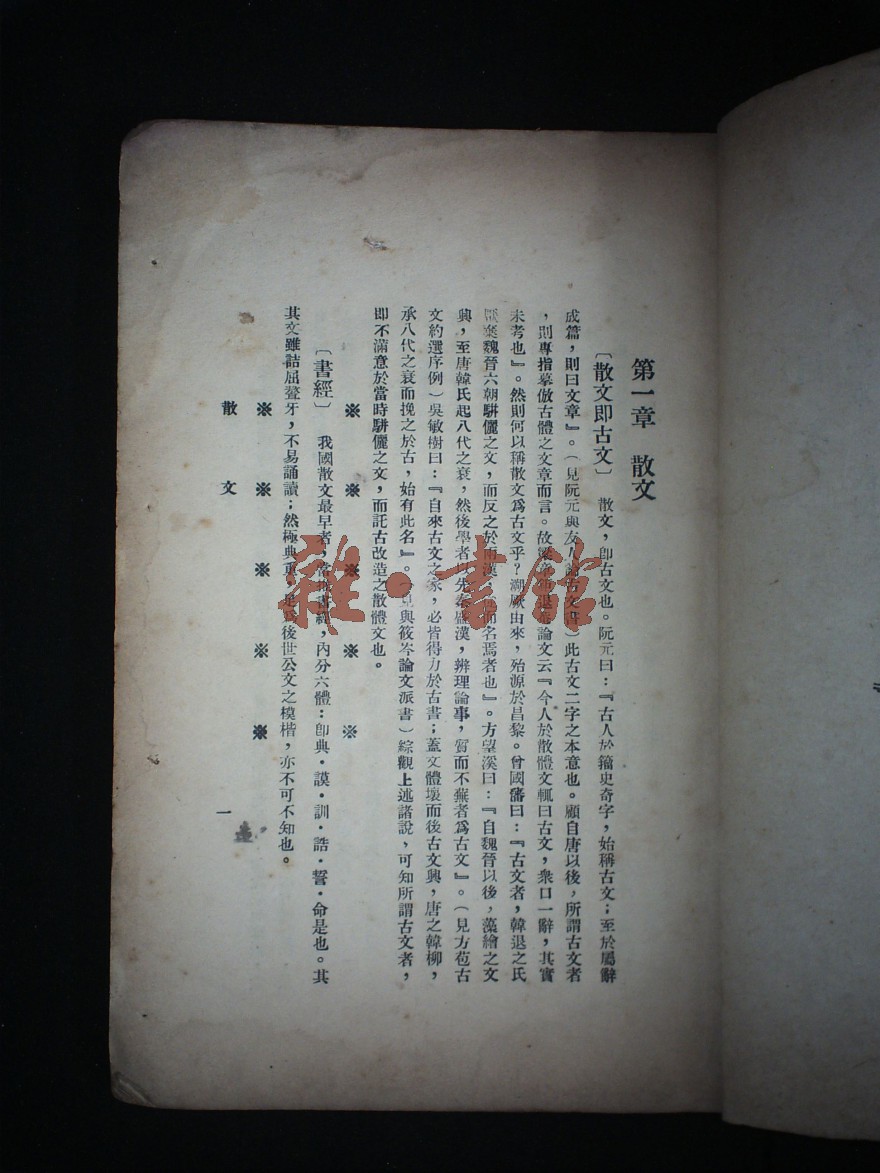 第一章　散文
〔散文即古文〕　散文，卽古文也。阮元曰：『古人於籀史奇字，始稱古文；至於屬辭
成篇，則曰文章』。（見阮元與友人論古文書）此古文二字之本意也。顧自唐以後，所謂古文者
，則專指摹倣古體之文章而言。故梁章退論文云『今人於散體文輒曰古文，衆口一辭，其實
未考也』。然則何以稱散文爲古文乎？溯厥由來，殆源於昌黎。曾國藩曰：『古文者，韓退之氏
厭棄魏晉六朝騈儷之文，而反之於兩漢，而名焉者也』。方望溪曰：『自魏晉以後，藻繪之文
興，至唐韓氏起八代之衰，然後學者以先秦盛漢，辨理論事，質而不蕪者爲古文』。（見方苞古
文約選序例）吳敏樹曰：『自來古文之家，必皆得力於古書；蓋文體壞而後古文興，唐之韓柳，
承八代之衰而挽之於古，始有此名』。（見與筱岑論文派書）綜觀上述諸說，可知所謂古文者，
即不滿意於當時騈儷之文，而託古改造之散體文也。
※　※　※　※　※
〔書經〕　我國散文最早者，當推書經，內分六體：卽典・謨・訓・誥・誓・命是也。其
其文雖詰屈聱牙，不易誦讀；然極典重，是爲後世公文之模楷，亦不可不知也。
※　※　※　※　※
散文　一
雜・書館